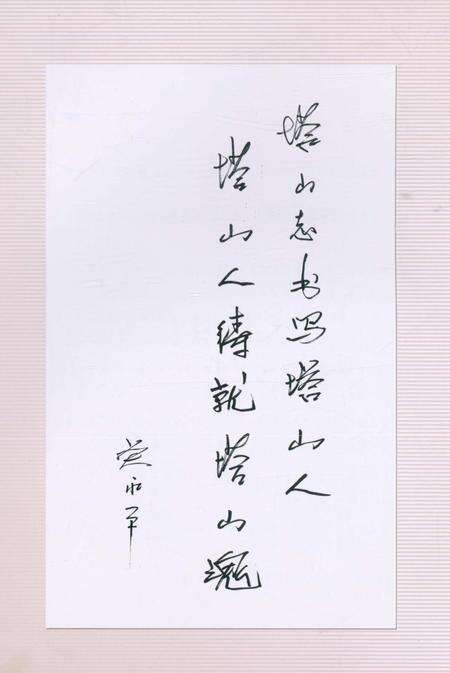 塔山志书写塔山人
塔山人铸就塔山魂